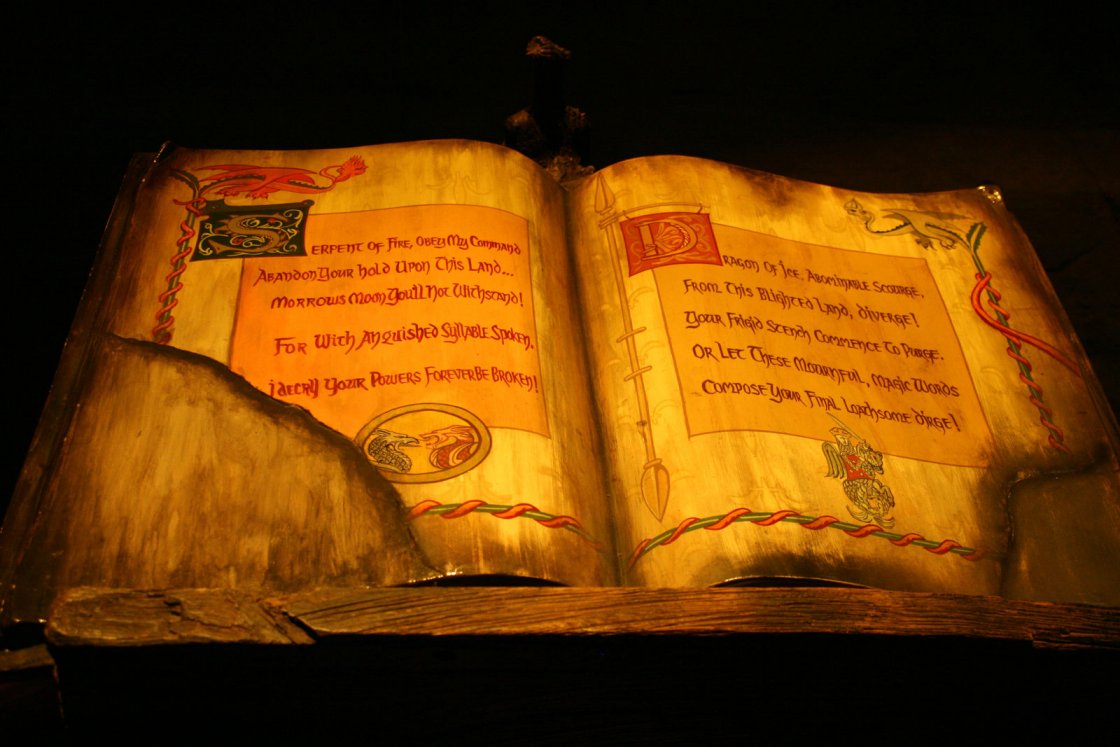 Serpent of Fire, Obey My Command
Abandon Your Hold Upon This Land...
Morrows Moon You'll Not Withstand!
For With Anguished Syllable Spoken,
I decry Your Powers Forever Be Broken!
Dragon Of Ice, Abominable Scourge,
From This Blighted Land, diverge!
Your Frigid Stench Commence To Purge.
Or Let These Mournful, Magic Words
Compose Your Final Loathsome dirge!